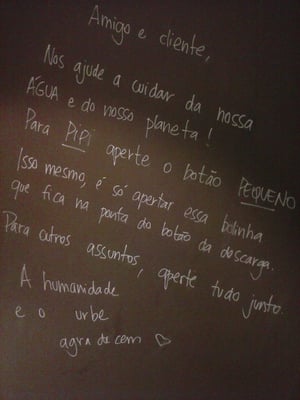 Amigo e cliente,
Nos ajude a cuidar da nossa
ÁGUA e do nosso planeta!
Para PiPi aperte o botão PEQUENO
Isso mesmo, é só apertar essa bolinha
que fica na ponta do botão da descarga.
Para outros assuntos, aperte tudo junto.
A humanidade
e o urbe
agradecem ♡